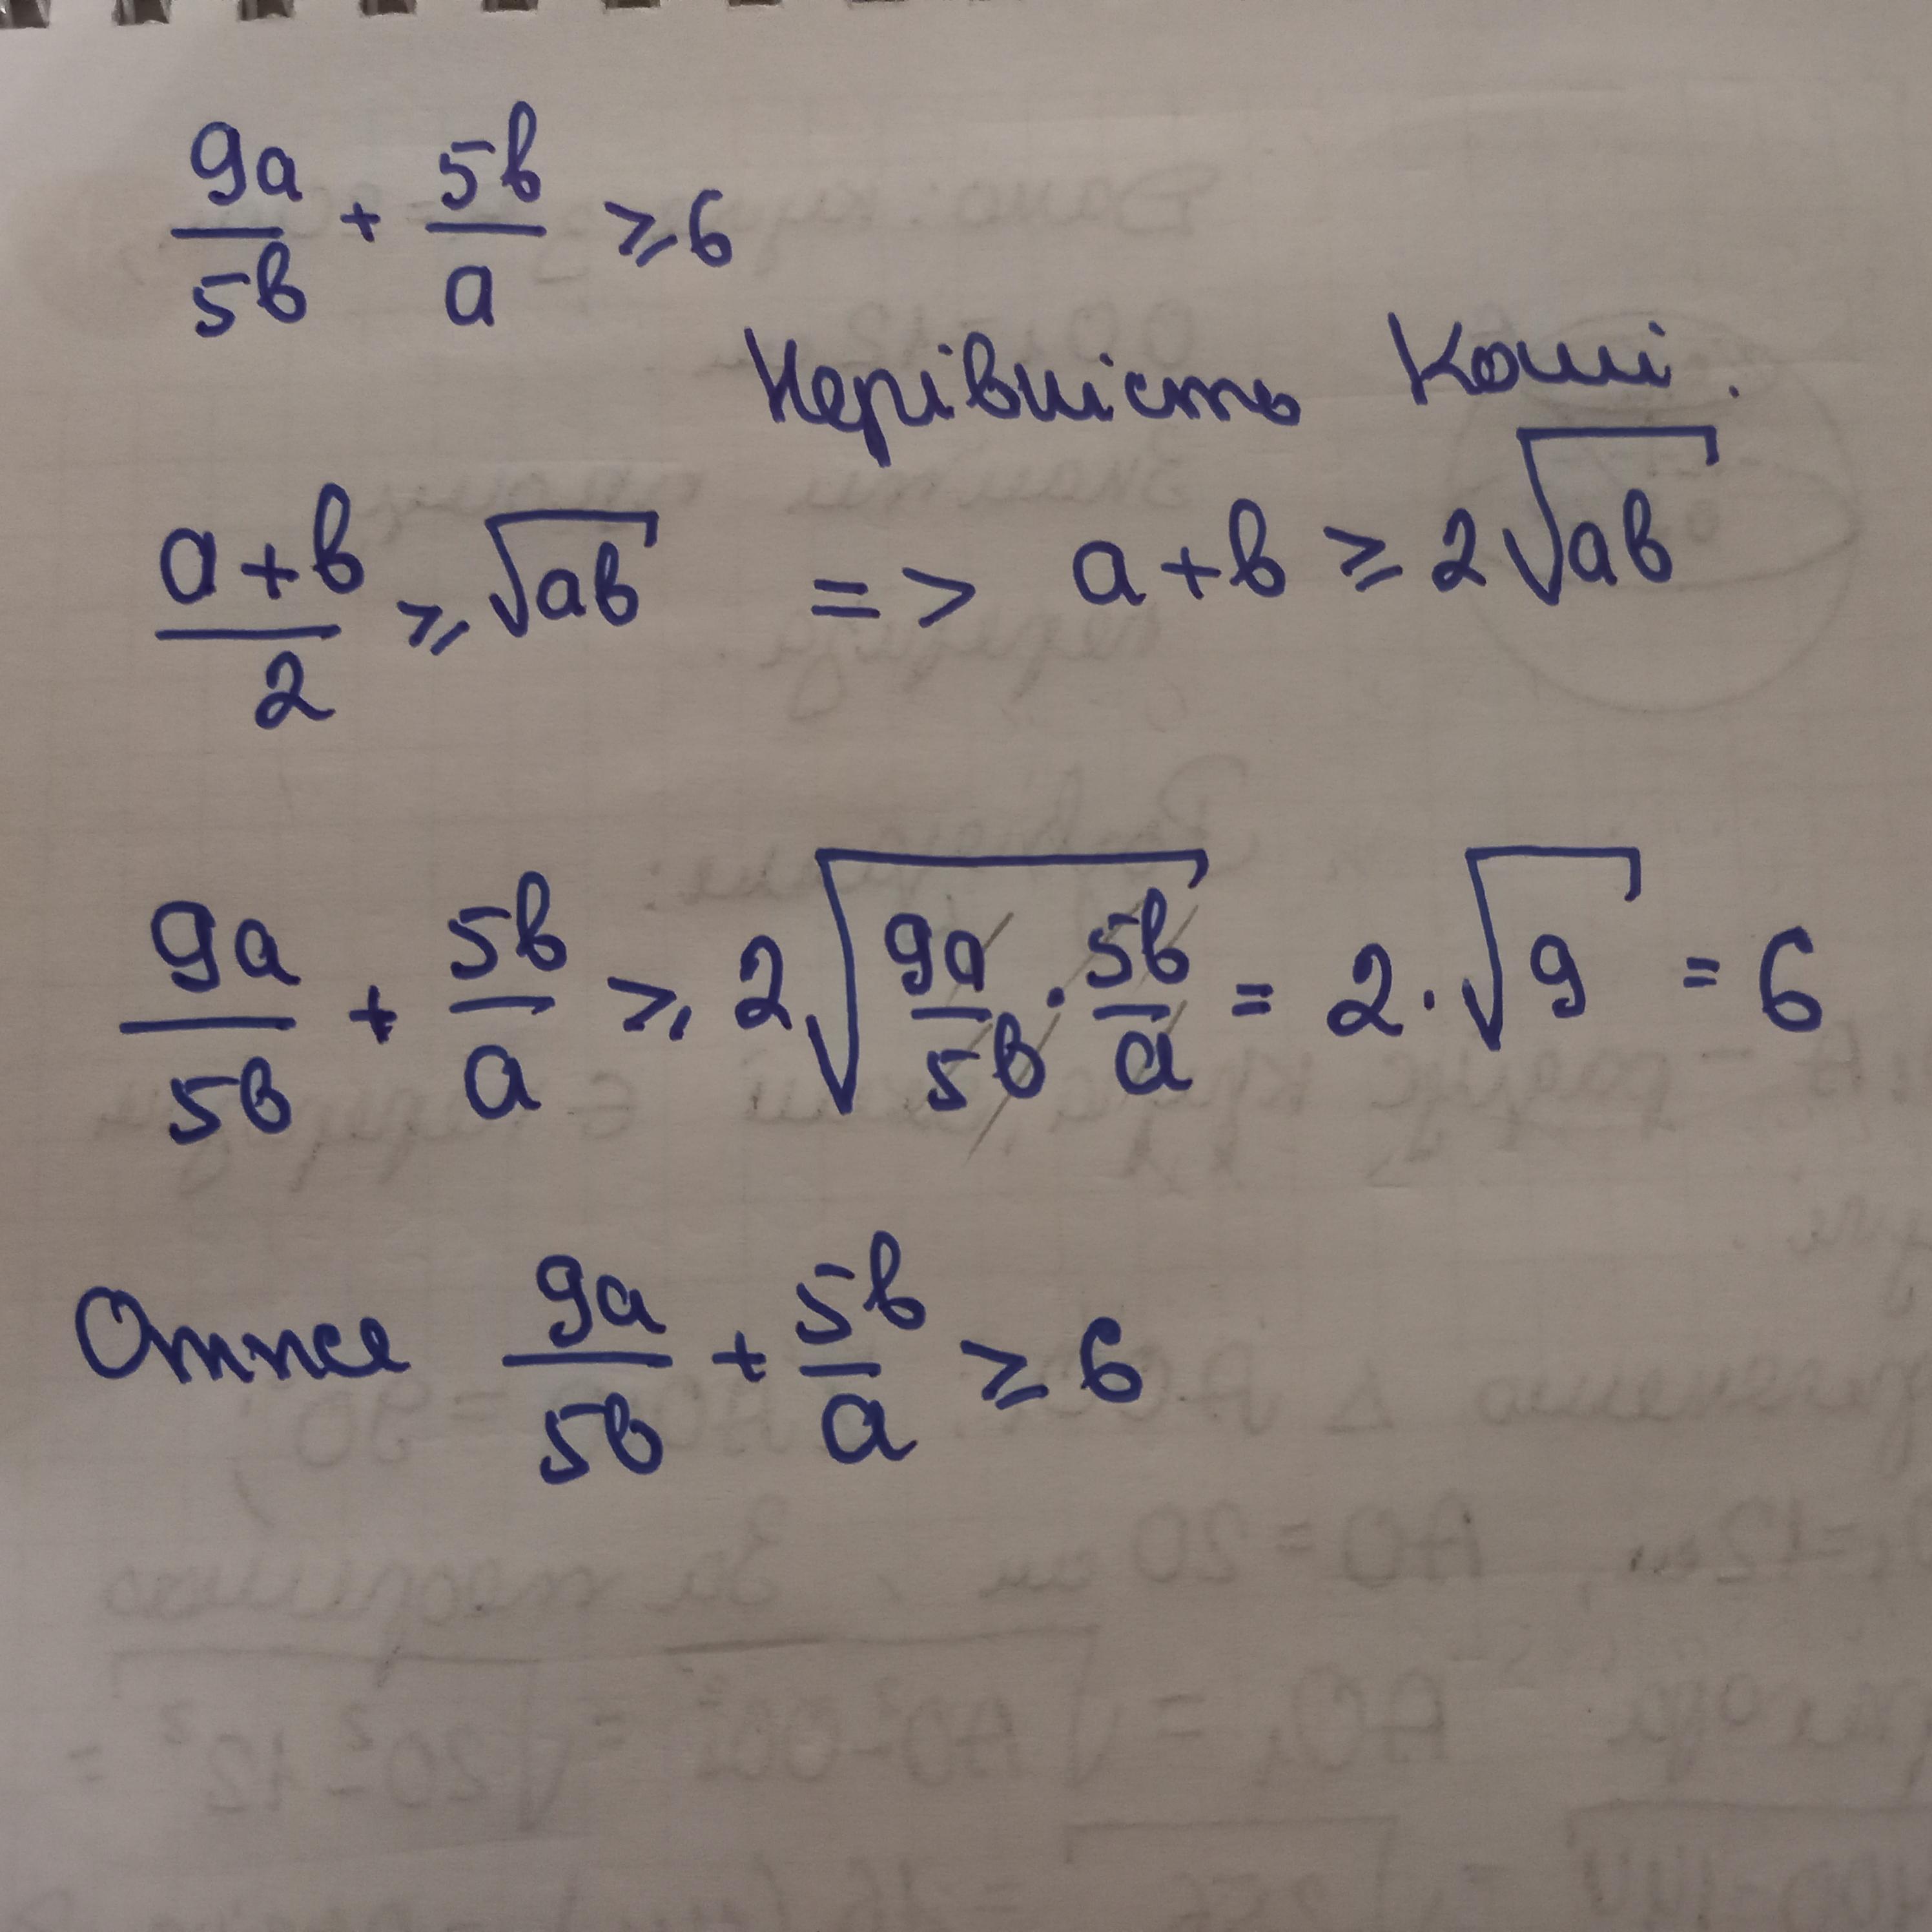 9a/5b + 5b/a ≥ 6
Нерівність Коші.
(a+b)/2 ≥ √(ab) => a+b ≥ 2√(ab)
9a/5b + 5b/a ≥ 2√(9a/5b · 5b/a) = 2·√9 = 6
Отже 9a/5b + 5b/a ≥ 6